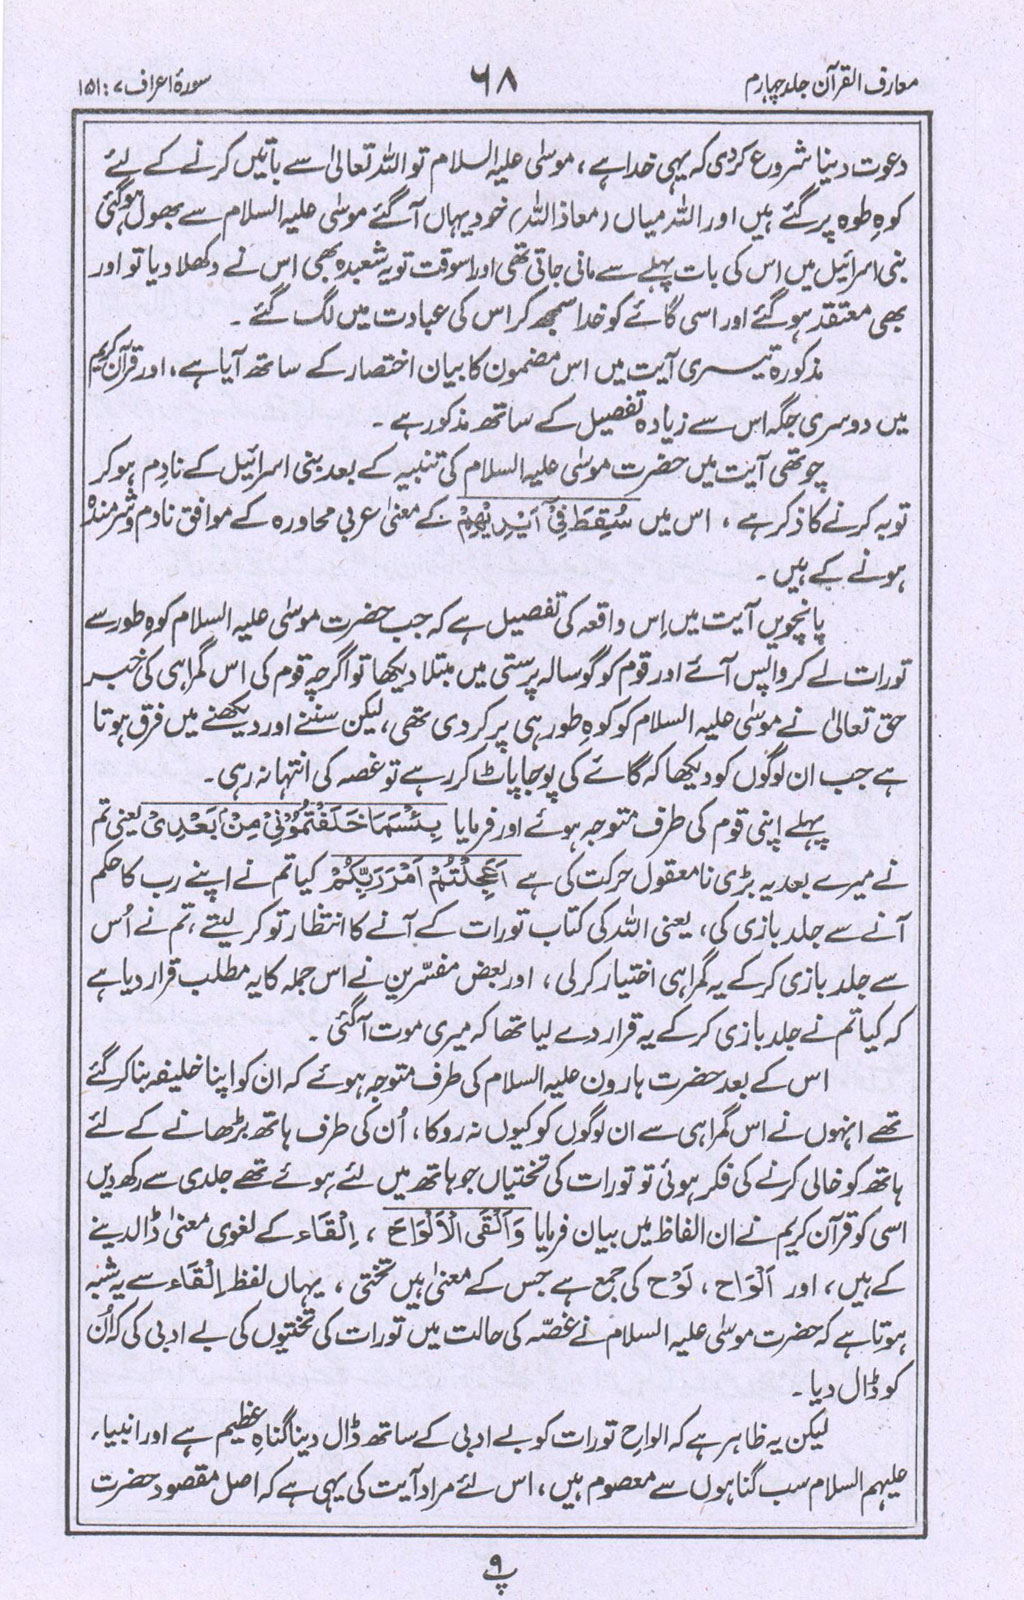 معارف القرآن جلد چہارم
۶۸
سورۂ اعراف ۷ : ۱۵۱
دعوت دینا شروع کردی کہ یہی خدا ہے ، موسٰی علیہ السلام تو اللہ تعالیٰ سے باتیں کرنے کے لئے
کوہِ طور پر گئے ہیں اور اللہ میاں (معاذ اللہ) خود یہاں آگئے موسٰی علیہ السلام سے بھول ہوگئی
بنی اسرائیل میں اس کی بات پہلے سے مانی جاتی تھی اور اسوقت تو یہ شعبدہ بھی اس نے دکھلا دیا تو اور
بھی معتقد ہو گئے اور اسی گائے کو خدا سمجھ کر اس کی عبادت میں لگ گئے ۔
مذکورہ تیسری آیت میں اس مضمون کا بیان اختصار کے ساتھ آیا ہے ، اور قرآن کریم
میں دوسری جگہ اس سے زیادہ تفصیل کے ساتھ مذکور ہے ۔
چوتھی آیت میں حضرت موسٰی علیہ السلام کی تنبیہ کے بعد بنی اسرائیل کے نادم ہو کر
توبہ کرنے کا ذکر ہے ، اس میں سُقِطَ فِیْٓ اَیْدِیْھِمْ کے معنیٰ عربی محاورہ کے موافق نادم و شرمندہ
ہونے کے ہیں ۔
پانچویں آیت میں اِس واقعہ کی تفصیل ہے کہ جب حضرت موسٰی علیہ السلام کوہِ طور سے
تورات لے کر واپس آئے اور قوم کو گوسالہ پرستی میں مبتلا دیکھا تو اگرچہ قوم کی اس گمراہی کی خبر
حق تعالیٰ نے موسٰی علیہ السلام کو کوہِ طور ہی پر کر دی تھی ، لیکن سننے اور دیکھنے میں فرق ہوتا
ہے جب ان لوگوں کو دیکھا کہ گائے کی پوجا پاٹ کر رہے ہے تو غصہ کی انتہا نہ رہی ۔
پہلے اپنی قوم کی طرف متوجہ ہوئے اور فرمایا بِئْسَمَا خَلَفْتُمُوْنِیْ مِنْۢ بَعْدِیْ یعنی تم
نے میرے بعد یہ بڑی نامعقول حرکت کی ہے اَعَجِلْتُمْ اَمْرَ رَبِّکُمْ کیا تم نے اپنے رب کا حکم
آنے سے جلد بازی کی ، یعنی اللہ کی کتاب تورات کے آنے کا انتظار تو کر لیتے ، تم نے اُس
سے جلد بازی کر کے یہ گمراہی اختیار کر لی ، اور بعض مفسّرین نے اس جملہ کا یہ مطلب قرار دیا ہے
کہ کیا تم نے جلد بازی کر کے یہ قرار دے لیا تھا کہ میری موت آگئی ۔
اس کے بعد حضرت ہارون علیہ السلام کی طرف متوجہ ہوئے کہ ان کو اپنا خلیفہ بنا کر گئے
تھے انہوں نے اس گمراہی سے ان لوگوں کو کیوں نہ روکا ، اُن کی طرف ہاتھ بڑھانے کے لئے
ہاتھ کو خالی کرنے کی فکر ہوئی تو تورات کی تختیاں جو ہاتھ میں لئے ہوئے تھے جلدی سے رکھ دیں
اسی کو قرآن کریم نے ان الفاظ میں بیان فرمایا وَاَلْقَی الْاَلْوَاحَ ، اِلْقَاء کے لغوی معنیٰ ڈال دینے
کے ہیں ، اور اَلْوَاح ، لَوْح کی جمع ہے جس کے معنیٰ ہیں تختی ، یہاں لفظ اِلْقَاء سے یہ شبہ
ہوتا ہے کہ حضرت موسٰی علیہ السلام نے غصّہ کی حالت میں تورات کی تختیوں کی بے ادبی کی کہ اُن
کو ڈال دیا ۔
لیکن یہ ظاہر ہے کہ الواحِ تورات کو بے ادبی کے ساتھ ڈال دینا گناہِ عظیم ہے اور انبیاء
علیہم السلام سب گناہوں سے معصوم ہیں ، اس لئے مراد آیت کی یہی ہے کہ اصل مقصود حضرت
پ ۹